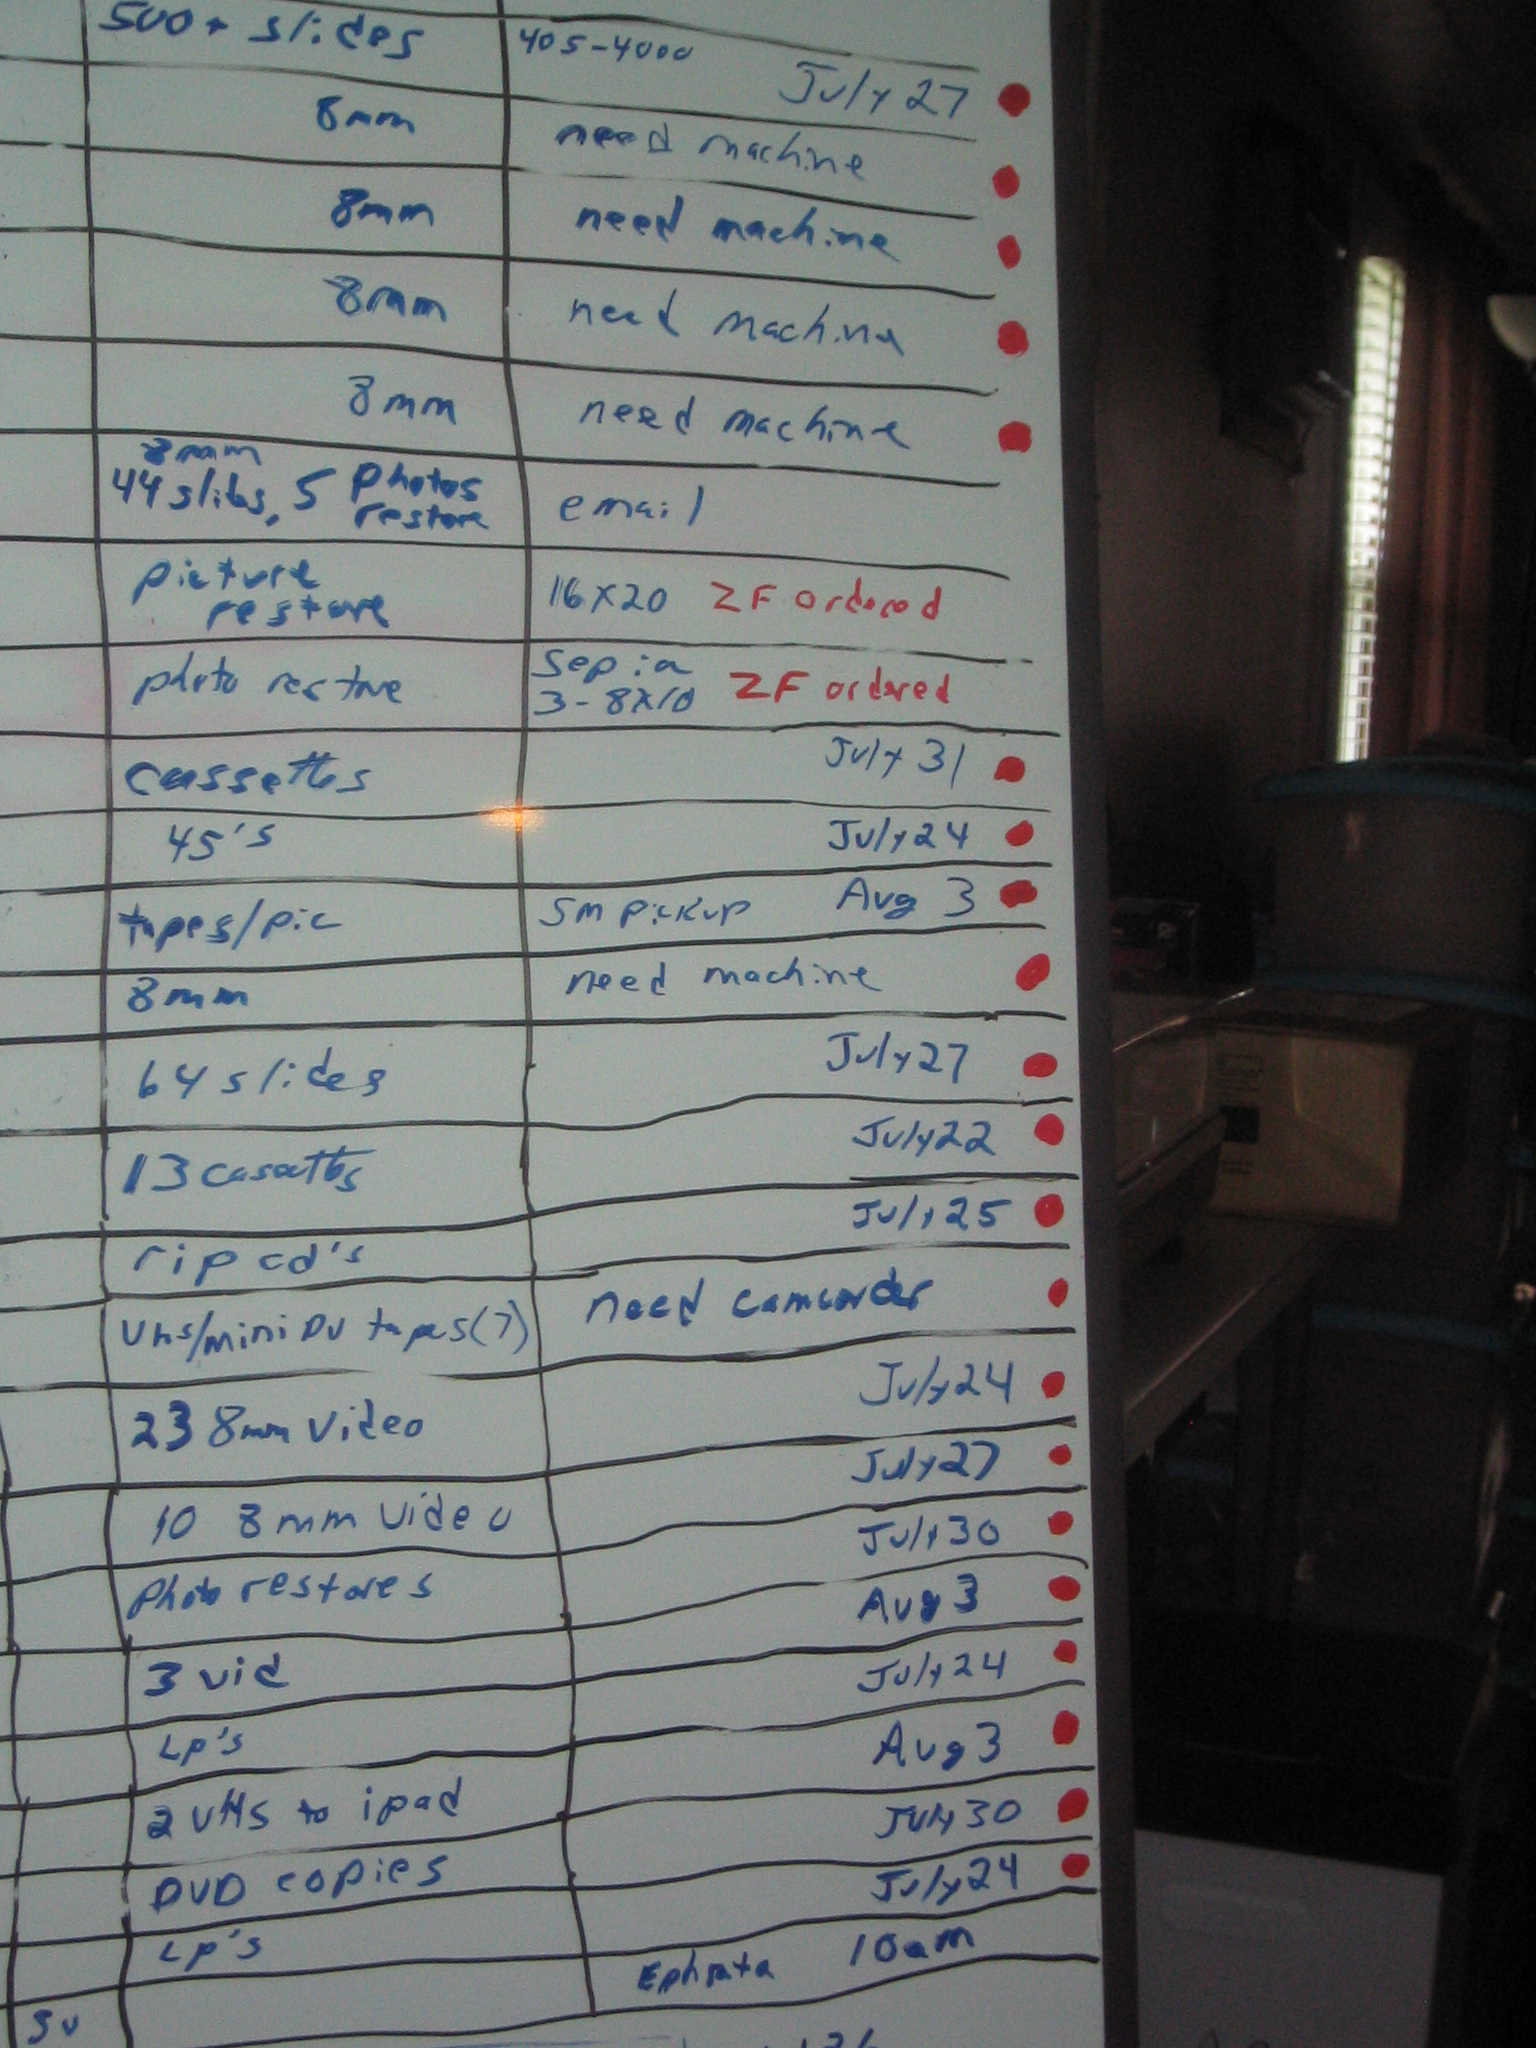 500+ slides 405-4000 July 27
8mm need machine
8mm need machine
8mm need machine
8mm need machine
8mm
44 slides, 5 photos
restore email
picture
restore 16x20 ZF ordered
photo restore Sepia
3-8x10 ZF ordered
cassettes July 31
45's July 24
tapes/pic SM pickup Aug 3
8mm need machine
64 slides July 27
13 casettes July 22
rip cd's July 25
VHS/mini DV tapes(7) need camcorder
23 8mm video July 24
10 8mm video July 27
photo restores July 30
3 vid Aug 3
LP's July 24
2 VHS to ipad Aug 3
DVD copies July 30
LP's July 24
Ephrata 10am